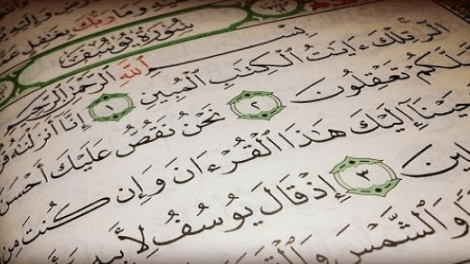 وَمَا رَبُّكَ بِغَٰفِلٍ عَمَّا
سُورَةُ يُوسُفَ
بِسْمِ ٱللَّهِ ٱلرَّحْمَٰنِ ٱلرَّحِيمِ
الٓر تِلْكَ ءَايَٰتُ ٱلْكِتَٰبِ ٱلْمُبِينِ ١ إِنَّآ أَنزَلْنَٰهُ
لَّكُمْ تَعْقِلُونَ ٢ نَحْنُ نَقُصُّ عَلَيْكَ أَحْسَنَ
حَيْنَآ إِلَيْكَ هَٰذَا ٱلْقُرْءَانَ وَإِن كُنتَ مِن
لِينَ ٣ إِذْ قَالَ يُوسُفُ لِأَبِيهِ
وَٱلشَّمْسَ وَٱلْقَمَرَ